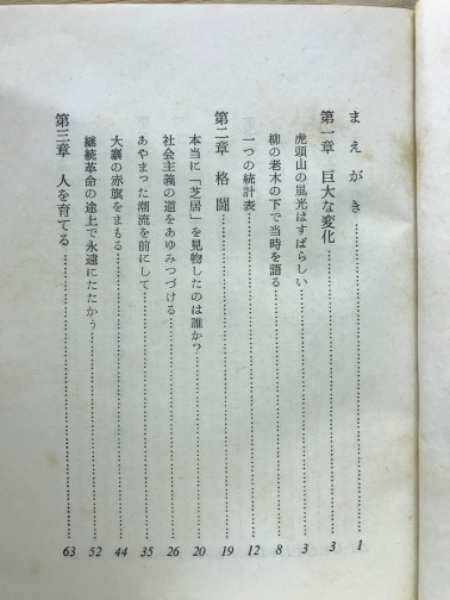 まえがき……1
第一章　巨大な変化……3
虎頭山の風光はすばらしい……3
柳の老木の下で当時を語る……8
一つの統計表……12
第二章　格闘……19
本当に「芝居」を見物したのは誰か?……20
社会主義の道をあゆみつづける……26
あやまった潮流を前にして……35
大寨の赤旗をまもる……44
継続革命の途上で永遠にたたかう……52
第三章　人を育てる……63